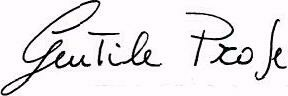 Gentile Prof